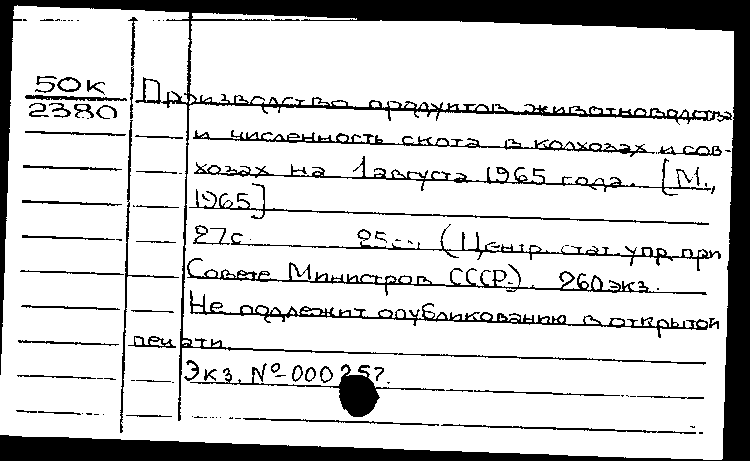 50К
2380
Производство продуктов животноводства
и численность скота в колхозах и сов-
хозах на 1 августа 1965 года. [М.,
1965]
27с. 25см. (Центр. стат. упр. при
Совете Министров СССР). 260 экз.
Не подлежит опубликованию в открытой
печати.
Экз. № 000257.